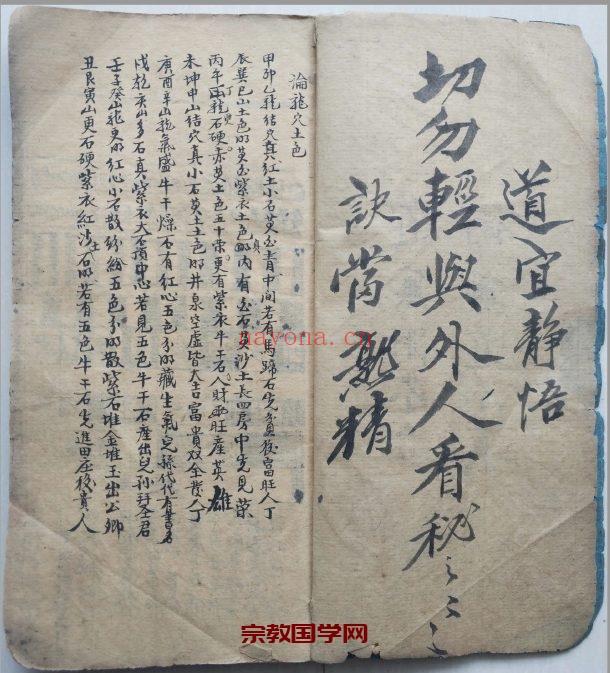 道宜静悟
切勿輕與外人看秘之之之
訣當熟精
論龍穴土色
甲卯乙龍結穴真紅土小石黄白青中間若有馬蹄石先貧後富旺人丁
辰巽巳山土色明黄白紫衣土色明内有白石黄沙土長四房中先見榮
丙午丁龍石硬赤黄土色五十栗更有紫衣牛干石人財两旺産英雄
未坤申山結穴真小石黄土土色明井泉空虚皆大吉富貴双全發人丁
庚酉辛山龍氣盛牛干爆石有紅心五色分明藏生氣兒孫代代有書名
戌乾亥山多石真紫衣大石頂中心若見五色牛干石產出兒孙拜圣君
壬子癸山龍更明紅心小石散紛紛五色分明散紫石堆金堆玉出公卿
丑艮寅山更石硬紫衣紅沙石明若有五色牛干石先進田庄後貴人
nayona.cn
宗教国学网